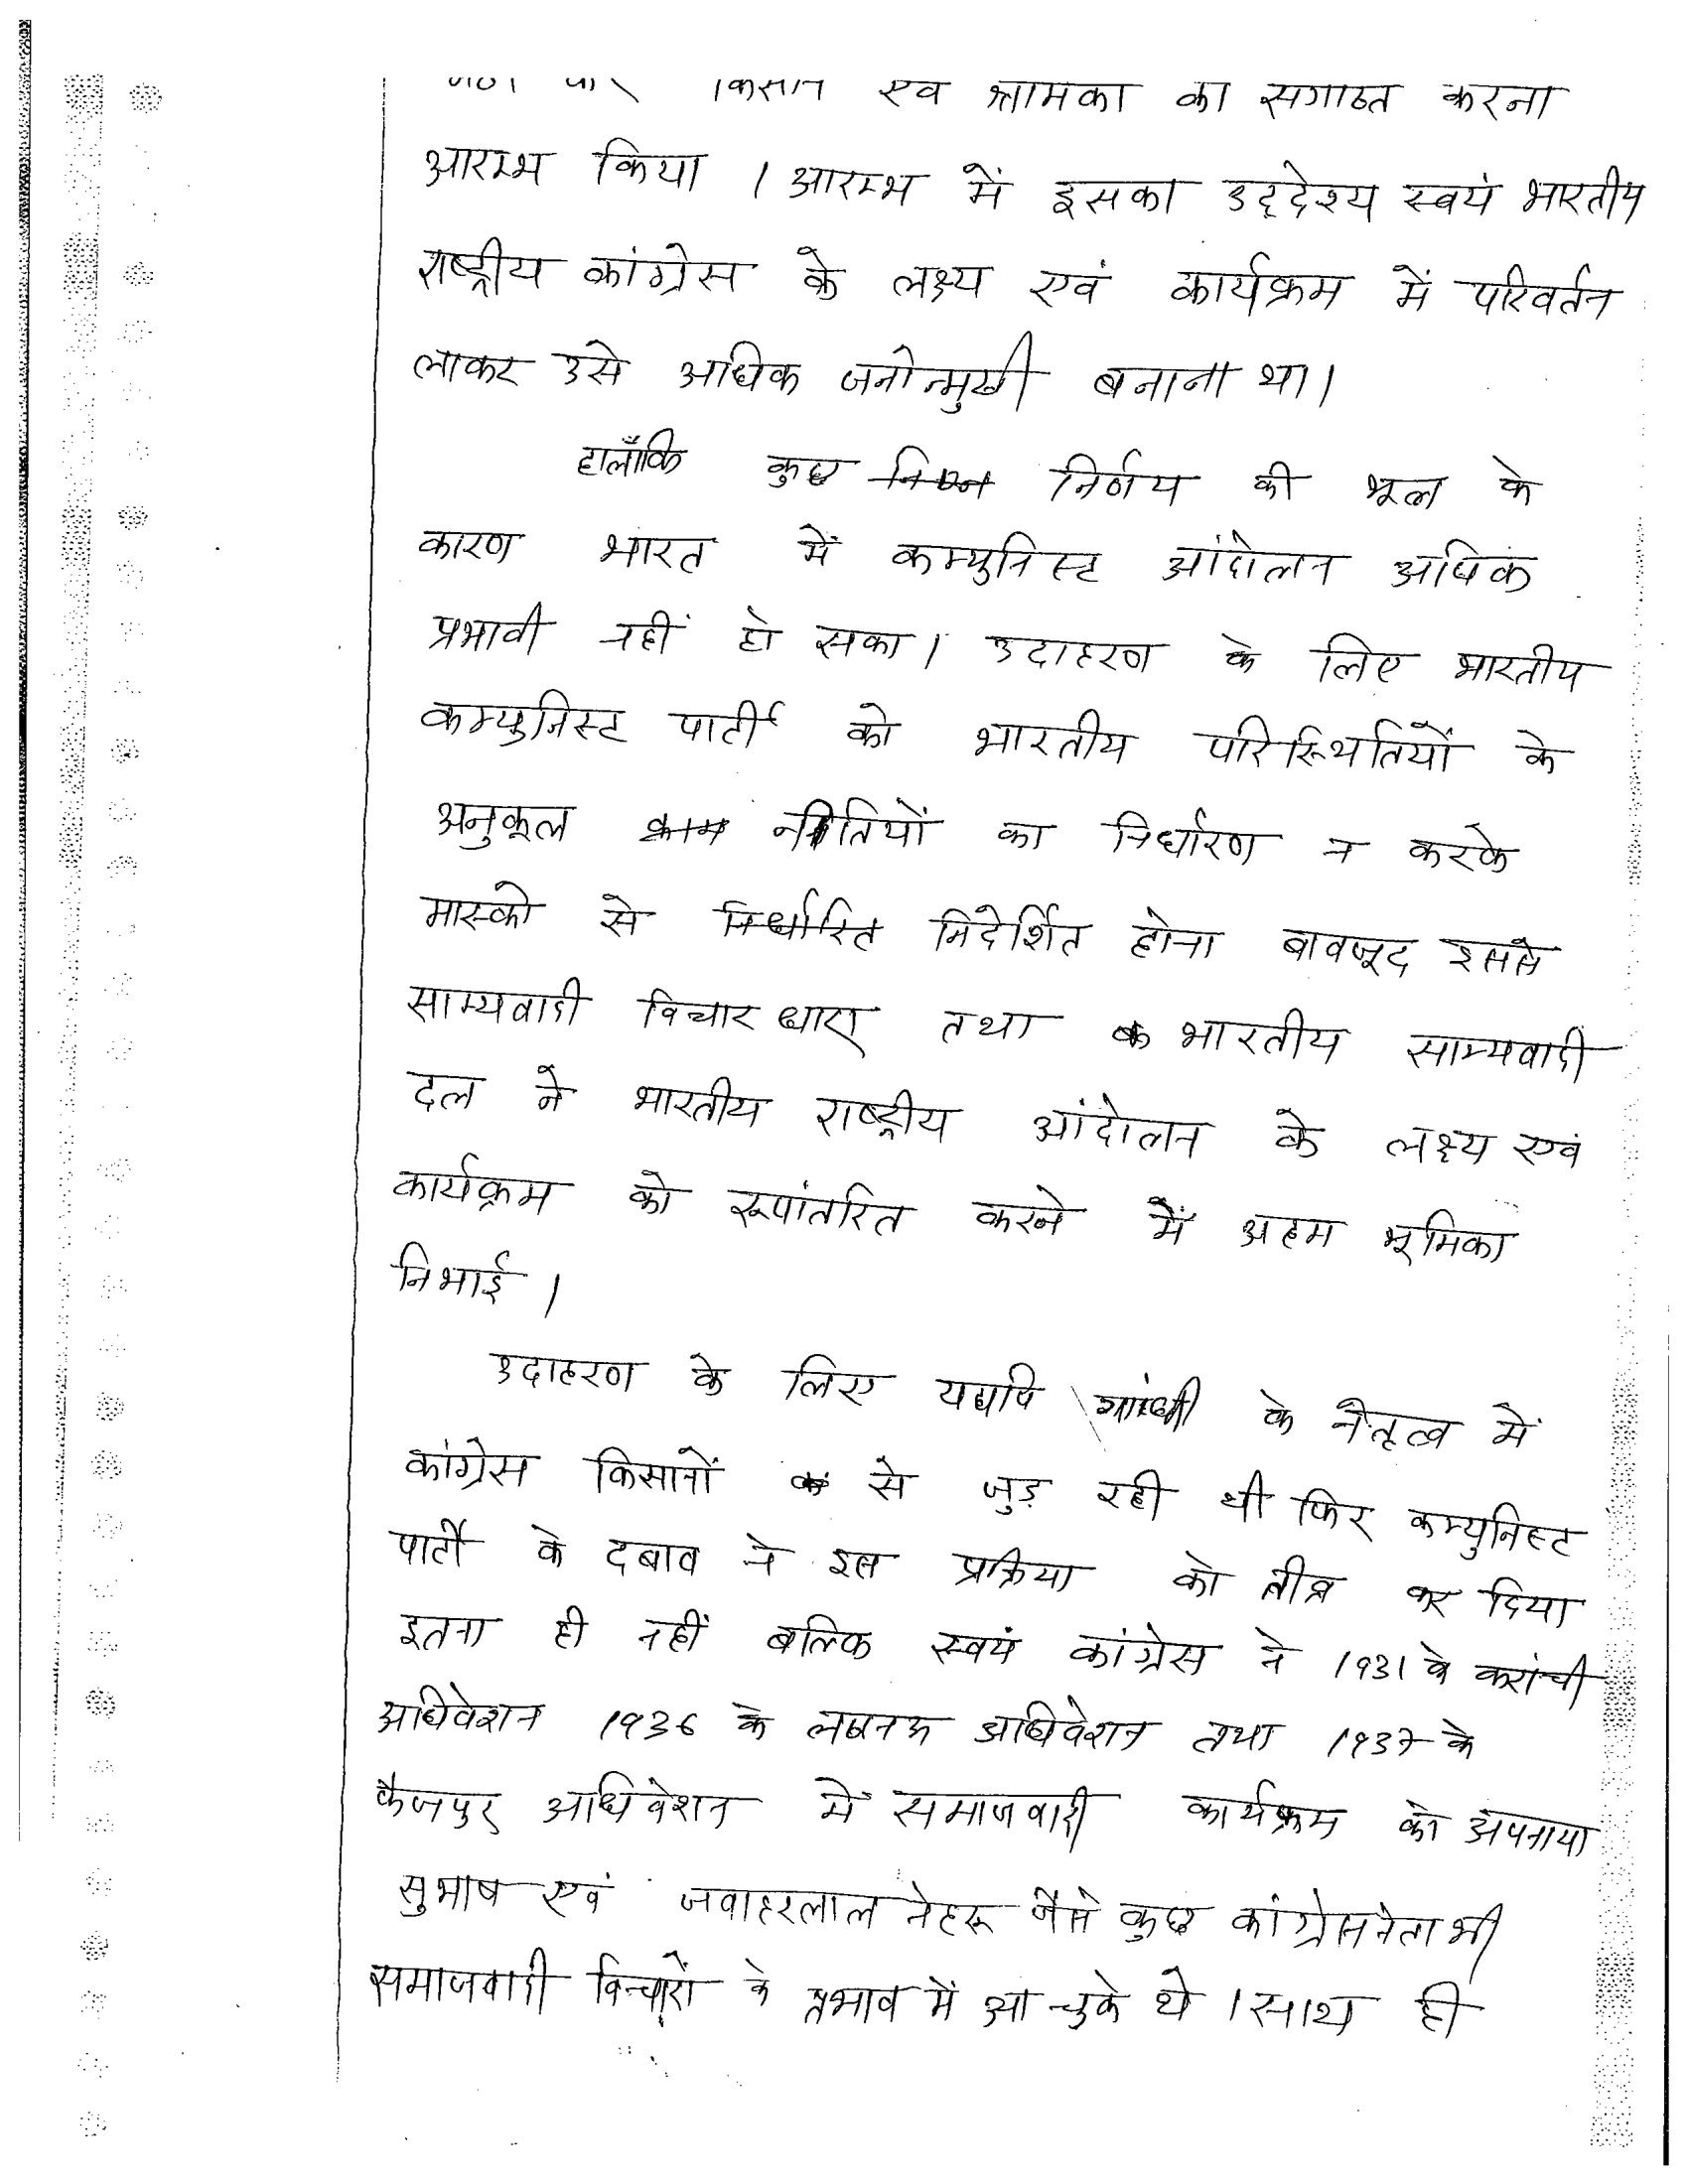 किसान एवं श्रामिकों को संगठित करना
आरम्भ किया । आरम्भ में इसका उद्देश्य स्वयं भारतीय
राष्ट्रीय कांग्रेस के लक्ष्य एवं कार्यक्रम में परिवर्तन
लाकर उसे अधिक जनोन्मुखी बनाना था।
हालाँकि कुछ निर्णय की भूल के
कारण भारत में कम्युनिस्ट आंदोलन अधिक
प्रभावी नहीं हो सका। उदाहरण के लिए भारतीय
कम्युनिस्ट पार्टी को भारतीय परिस्थितियों के
अनुकूल नीतियों का निर्धारण न करके
मास्को से निर्धारित निदेर्शित होना बावजूद इसके
साम्यवादी विचारधारा तथा भारतीय साम्यवादी
दल ने भारतीय राष्ट्रीय आंदोलन के लक्ष्य एवं
कार्यक्रम को रूपांतरित करने में अहम भूमिका
निभाई ।
उदाहरण के लिए यद्यपि गांधी के नेतृत्व में
कांग्रेस किसानों से जुड़ रही थी फिर कम्युनिस्ट
पार्टी के दबाव ने इस प्रक्रिया को तीव्र कर दिया
इतना ही नहीं बल्कि स्वयं कांग्रेस ने 1931 के करांची
अधिवेशन 1936 के लखनऊ अधिवेशन तथा 1937 के
फैजपुर अधिवेशन में समाजवादी कार्यक्रम को अपनाया
सुभाष एवं जवाहरलाल नेहरू जैसे कुछ कांग्रेस नेता भी
समाजवादी विचारों के प्रभाव में आ चुके थे । साथ ही